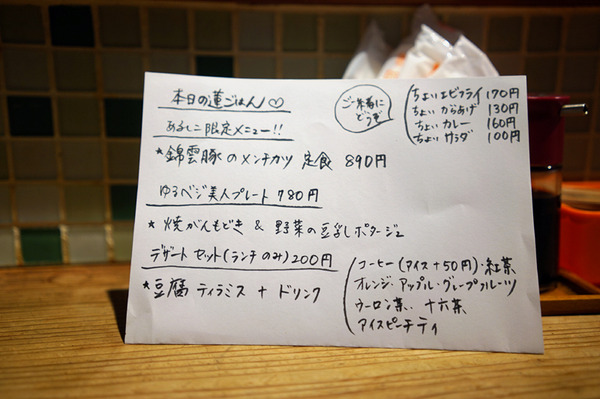 本日の蓮ごはん♡
あるしこ限定メニュー!!
★錦雲豚のメンチカツ 定食 890円
ゆるベジ美人プレート 780円
★ 焼がんもどき & 野菜の豆乳ポタージュ
デザートセット(ランチのみ)200円
★豆腐 ティラミス + ドリンク
ご一緒に
どうぞ
ちょいエビフライ 170円
ちょい からあげ 130円
ちょい カレー 160円
ちょい サラダ 100円
コーヒー(アイス+50円)・紅茶
オレンジ・アップル・グレープフルーツ
ウーロン茶、十六茶
アイスピーチティ